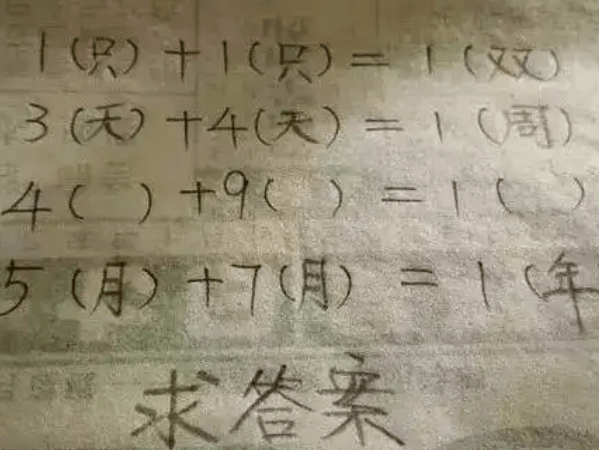 1(只)+1(只)=1(双)
3(天)+4(天)=1(周)
4( )+9( )=1( )
5(月)+7(月)=1(年
求答案